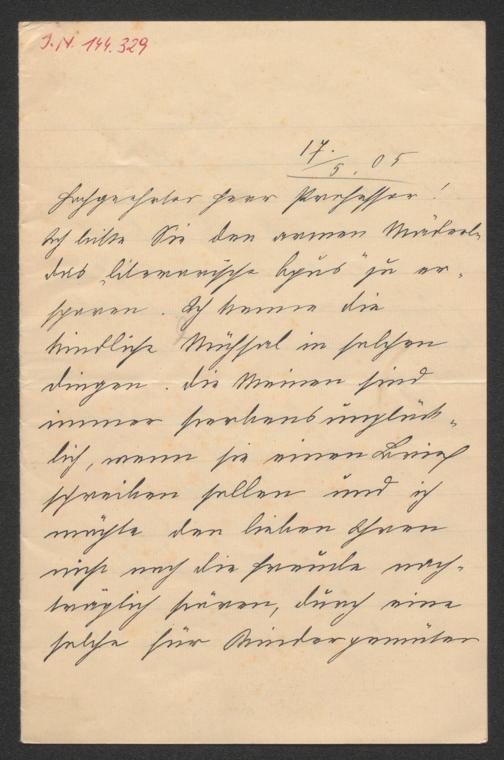 J.N. 144.329
17./5. 05
Hochgeehrter Herr Professor!
Ich bitte Sie den armen Mäderln
das „literarische Opus“ zu er-
sparen. Ich kenne die
kindliche Mühsal in solchen
Dingen. Die Meinen sind
immer sterbensunglück-
lich, wenn sie einen Brief
schreiben sollen und ich
möchte den lieben Ihren
nicht noch die Freude nach-
träglich stören, durch eine
solche für Kindergemüter